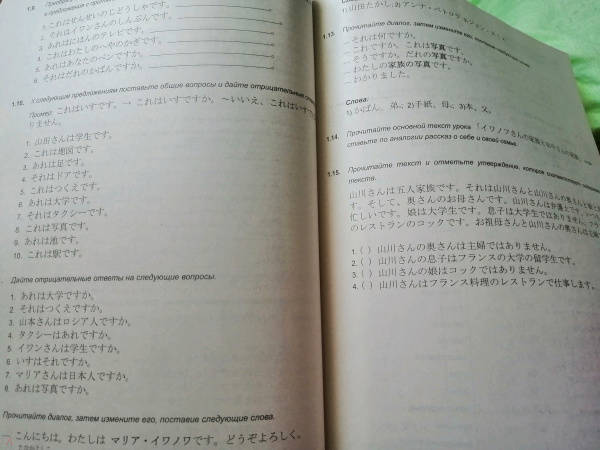 1.9. Преобразуйте
в предложения с
1. これはせんせいのじどうしゃです。
2. それはイワンさんのしんぶんです。
3. あれはにほんのテレビです。
4. これはわたしのへやのかぎです。
5. あれはあなたのペンです。
6. それはだれのかばんですか。
1.10. К следующим предложениям поставьте общие вопросы и дайте отрицательные
Пример: これはいすです。→ これはいすですか。〜いいえ、これはいすで
りません。
1. 山田さんは学生です。
2. これは地図です。
3. あれは足です。
4. それはドアです。
5. これはつくえです。
6. あれは大学です。
7. それはタクシーです。
8. これは写真です。
9. あれは池です。
10. これは駅です。
Дайте отрицательные ответы на следующие вопросы.
1. あれは大学ですか。
2. それはつくえですか。
3. 山本さんはロシア人ですか。
4. タクシーはあれですか。
5. イワンさんは学生ですか。
6. いすはそれですか。
7. マリアさんは日本人ですか。
8. あれは写真ですか。
Прочитайте диалог, затем измените его, поставив следующие слова.
こんにちは。わたしは マリア・イワノワです。どうぞよろしく。
1) 山田たかし; 2) アンナ・ペトロワ
1.13. Прочитайте диалог, затем измените его,
それは何ですか。
これですか。これは写真です。
そうですか。だれの写真ですか。
わたしの家族の写真です。
わかりました。
Слова:
1) かばん、弟; 2) 手紙、母; 3) 本、父。
1.14. Прочитайте основной текст урока 「イワノフさんの家族
ставьте по аналогии рассказ о себе и своей семье.
1.15. Прочитайте текст и отметьте утверждения, которые
текста.
山川さんは五人家族です。それは山川さんと山川さんの奥さんと
す。そして、奥さんのお母さんです。山川さんは弁護士です。
忙しいです。娘は大学生です。息子は大学生ではありません。フラ
のレストランのコックです。お祖母さんと山川さんの奥さんは主婦
1. ( ) 山川さんの奥さんは主婦ではありません。
2. ( ) 山川さんの息子はフランスの大学の留学生です。
3. ( ) 山川さんの娘はコックではありません。
4. ( ) 山川さんはフランス料理のレストランで仕事します。